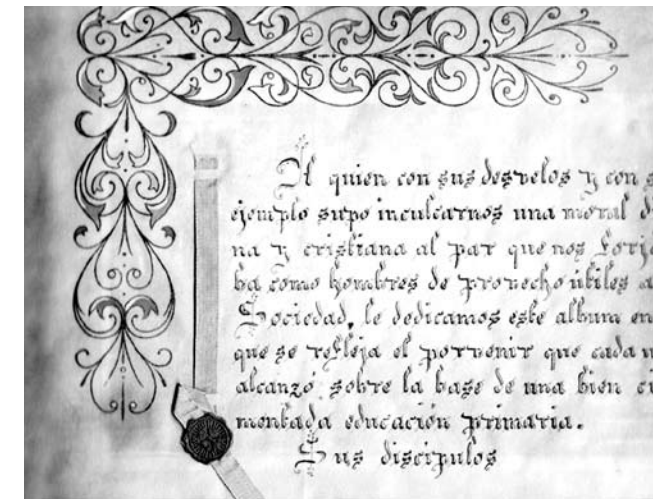 A quien con sus desvelos y con s
ejemplo supo inculcarnos una moral d
na y cristiana al par que nos forja
ba como hombres de provecho útiles a
Sociedad, le dedicamos este album en
que se refleja el porvenir que cada u
alcanzó sobre la base de una bien ci
mentada educación primaria.
Sus discipulos